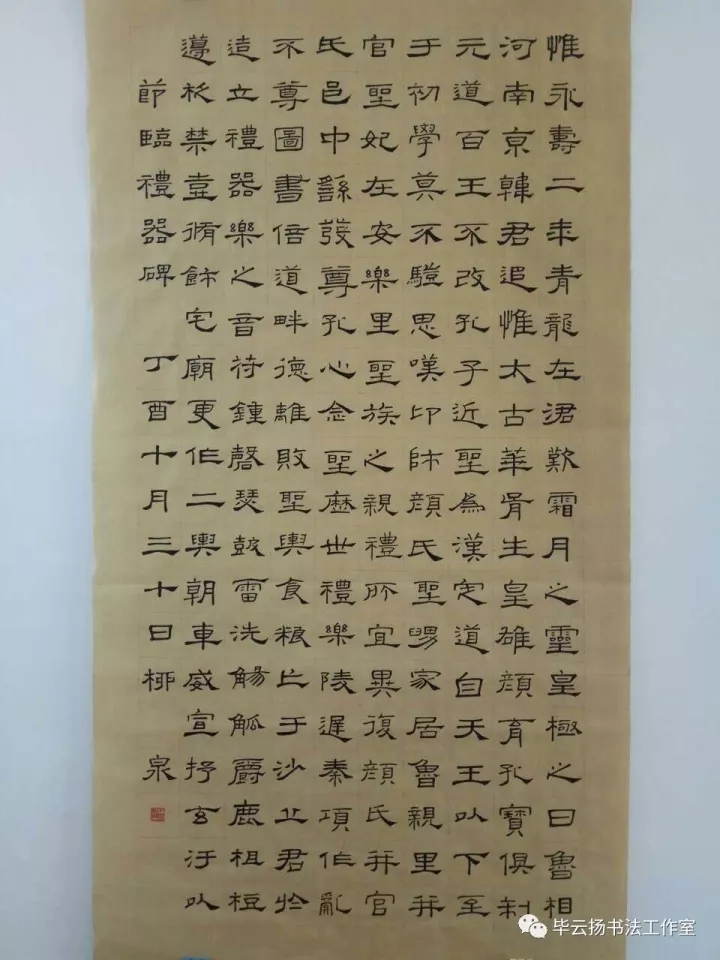 惟永壽二年青龍在涒歎霜月之靈皇極之日魯相
河南京韓君追惟太古華胥生皇雄顏育孔寶俱制
元道百王不改孔子近聖為漢定道自天王以下至
于初學莫不驩思嘆卬師顏氏聖舅家居魯親里并
官聖妃在安樂里聖族之親禮所宜異復顏氏并官
氏邑中繇發尊孔心念聖歷世禮樂陵遲秦項作亂
不尊圖書倍道畔德離敗聖輿食糧亡于沙丘君於
造立禮器樂之音符鍾磬瑟鼓雷洗觴觚爵鹿柤梪
籩柉禁壺脩飾宅廟更作二輿朝車威宣抒玄汙以
節臨禮器碑 丁酉十月三十日柳泉
毕云扬书法工作室